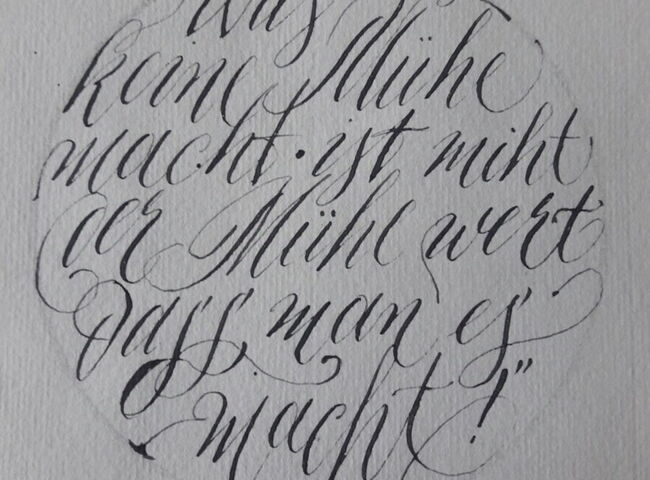 was
keine Mühe
macht · ist nicht
der Mühe wert
dass, man es
macht!"